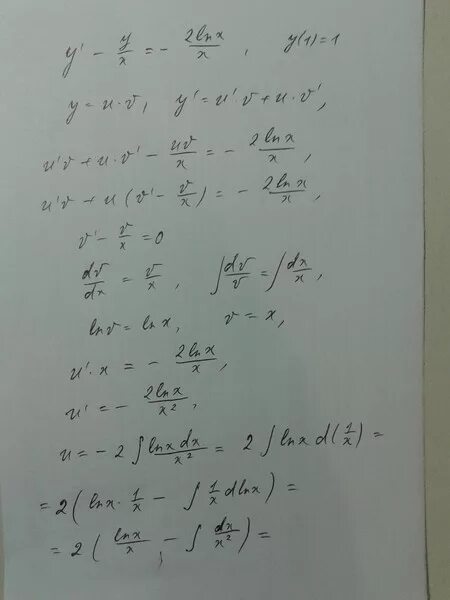 y' - y/x = - 2lnx/x , y(1)=1
y = u·v, y' = u'·v + u·v',
u'v + u·v' - uv/x = - 2lnx/x ,
u'v + u(v' - v/x) = - 2lnx/x ,
v' - v/x = 0
dv/dx = v/x , ∫dv/v = ∫dx/x ,
lnv = lnx, v = x,
u'·x = - 2lnx/x ,
u' = - 2lnx/x² ,
u = -2∫lnxdx/x² = 2∫lnx d(1/x) =
= 2(lnx·1/x - ∫1/x dlnx) =
= 2(lnx/x - ∫dx/x²) =